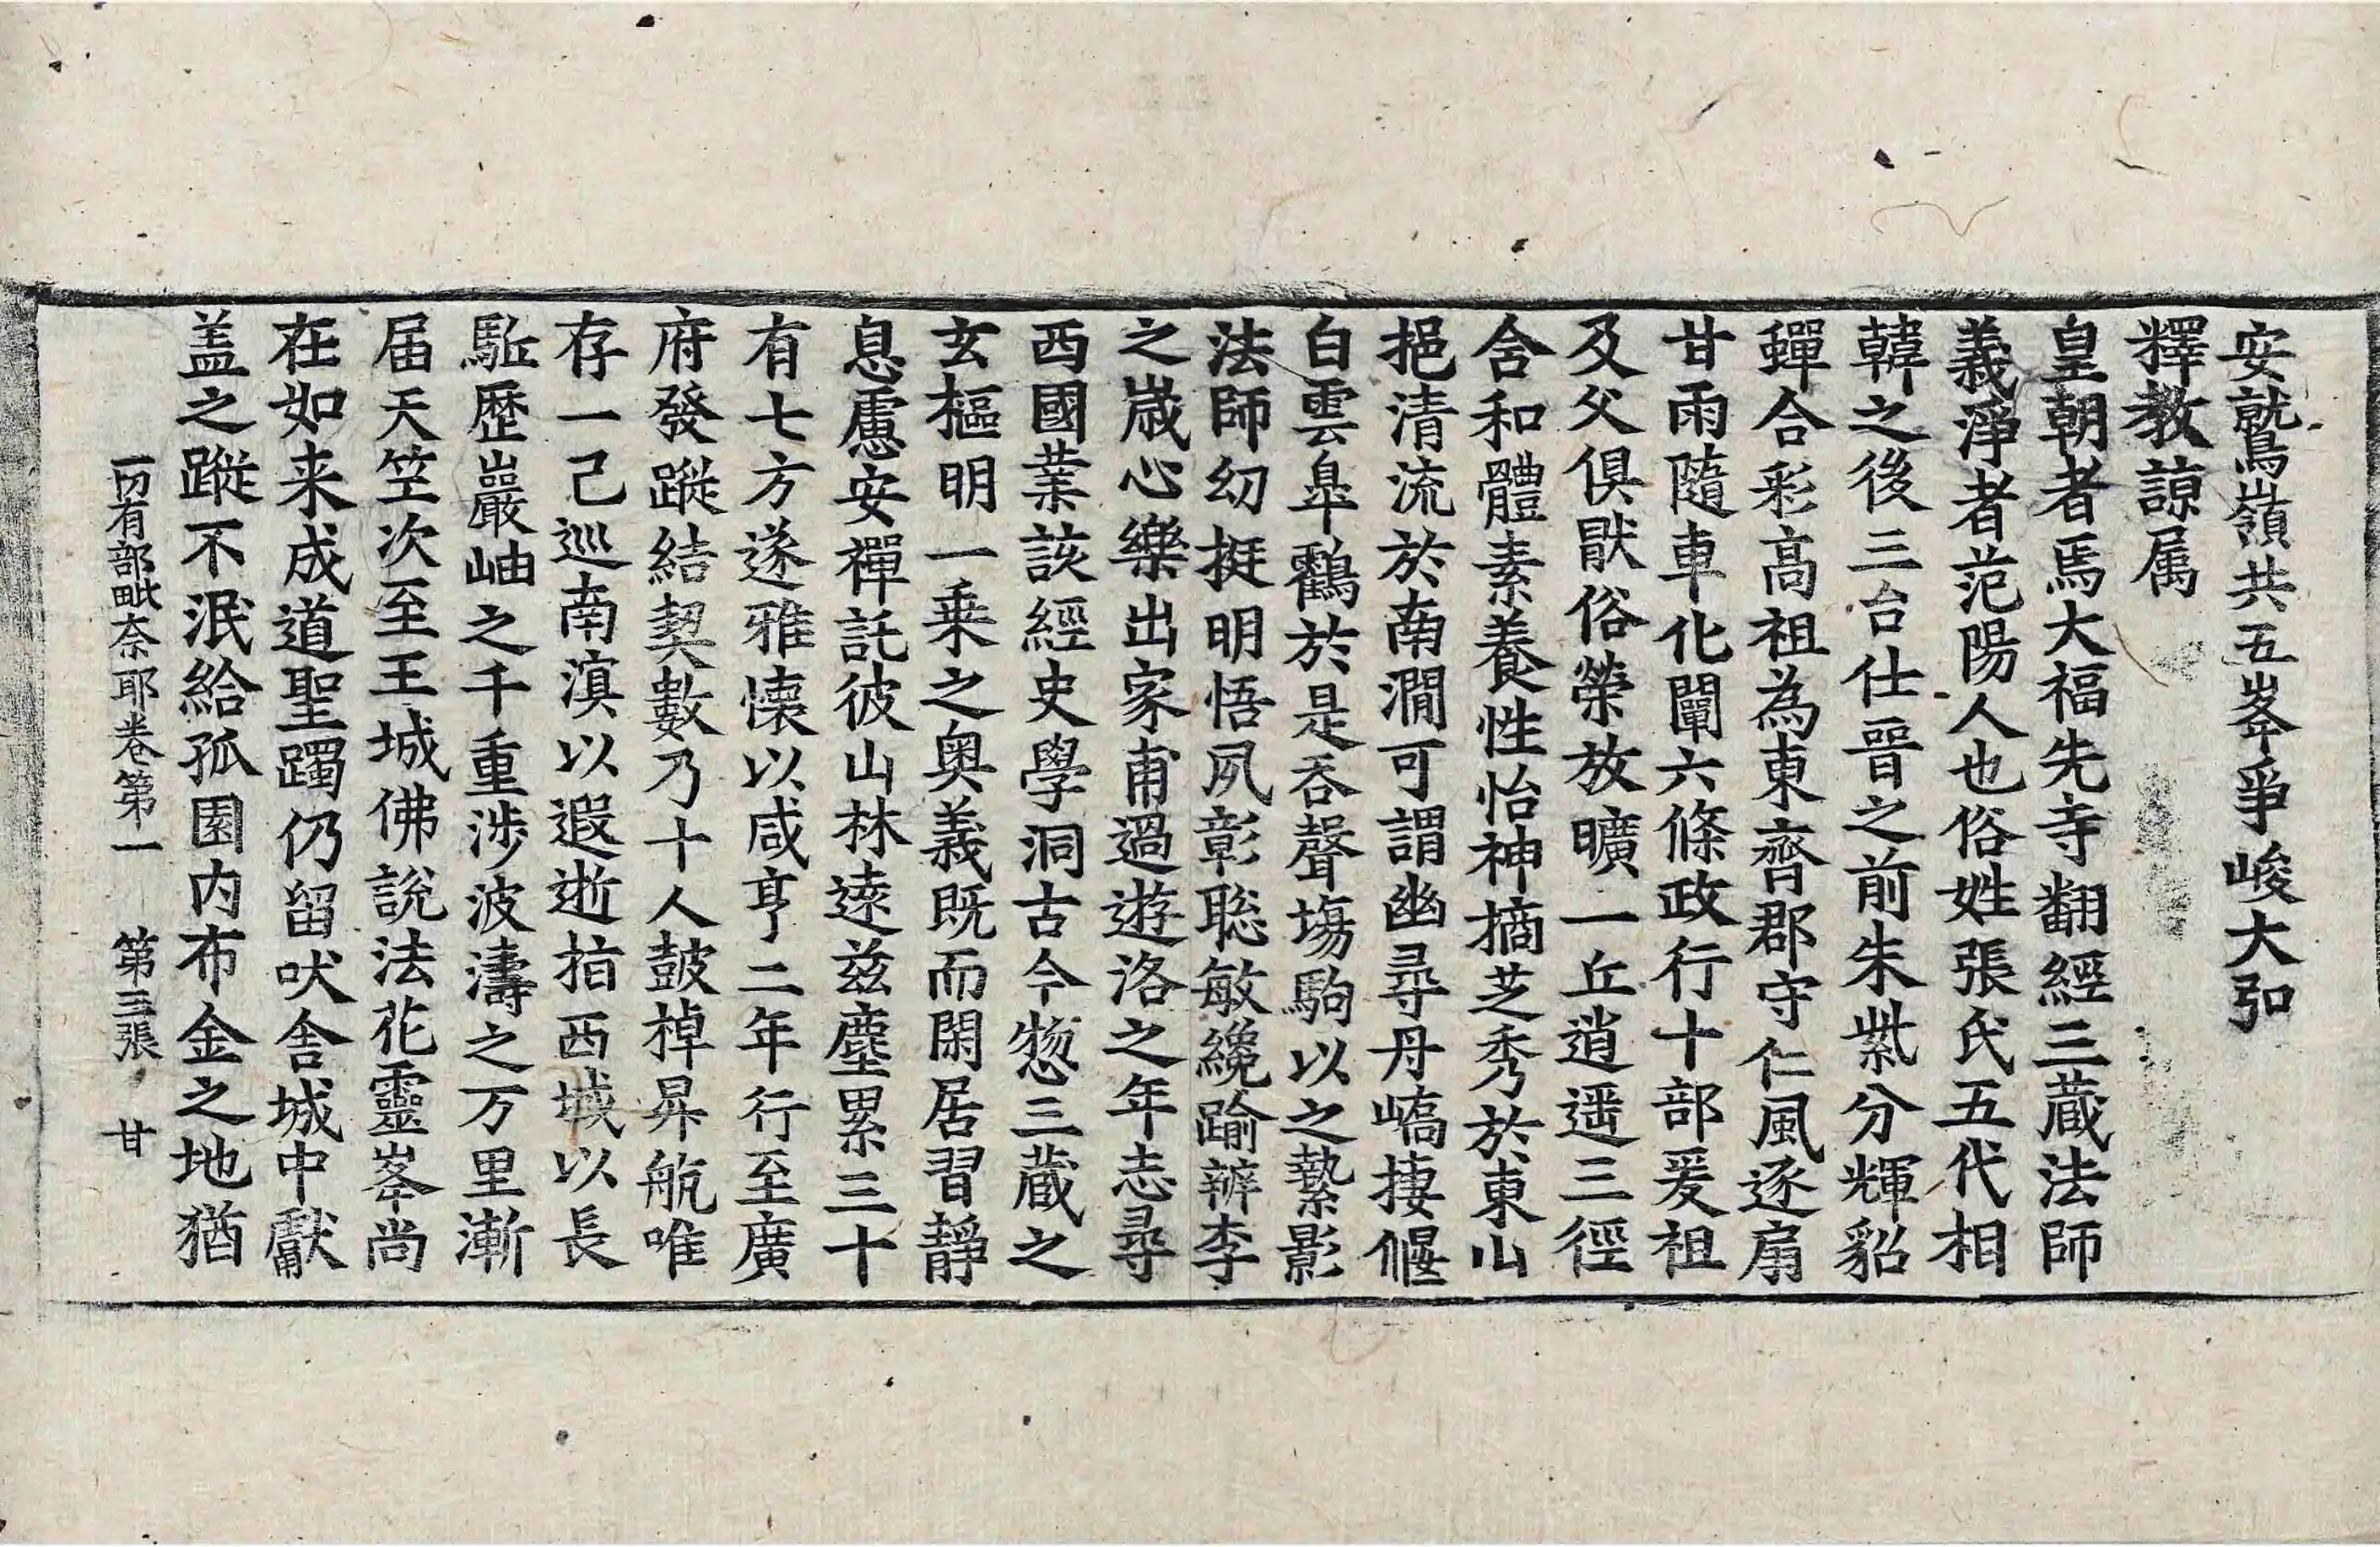 安鷲嶺共五峯爭峻大弘
釋教諒属
皇朝者焉大福先寺翻經三蔵法師
義淨者范陽人也俗姓張氏五代相
韓之後三台仕晉之前朱紫分輝貂
蟬合彩高祖為東齊郡守仁風逐扇
甘雨隨車化闡六條政行十部爰祖
及父俱猒俗榮放曠一丘逍遥三徑
含和體素養性怡神摘芝秀於東山
挹清流於南澗可謂幽尋丹嶠捿偃
白雲皐鸖於是吞聲塲駒以之縶影
法師幼挺明悟夙彰聡敏纔踰辧李
之嵗心樂出家甫過遊洛之年志尋
西國業該經史學洞古今惣三蔵之
玄樞明一乗之奥義既而閑居習靜
息慮安禪託彼山林遠兹塵累三十
有七方遂雅懐以咸亨二年行至廣
府發蹤結契數乃十人鼓棹昇航唯
存一己巡南溟以遐逝指西域以長
駈歴巖岫之千重渉波濤之万里漸
届天笁次至王城佛說法花靈峯尚
在如来成道聖躅仍留吠舎城中獻
盖之蹤不泯給孤園内布金之地猶
一切有部毗奈耶卷第一 第三張 甘